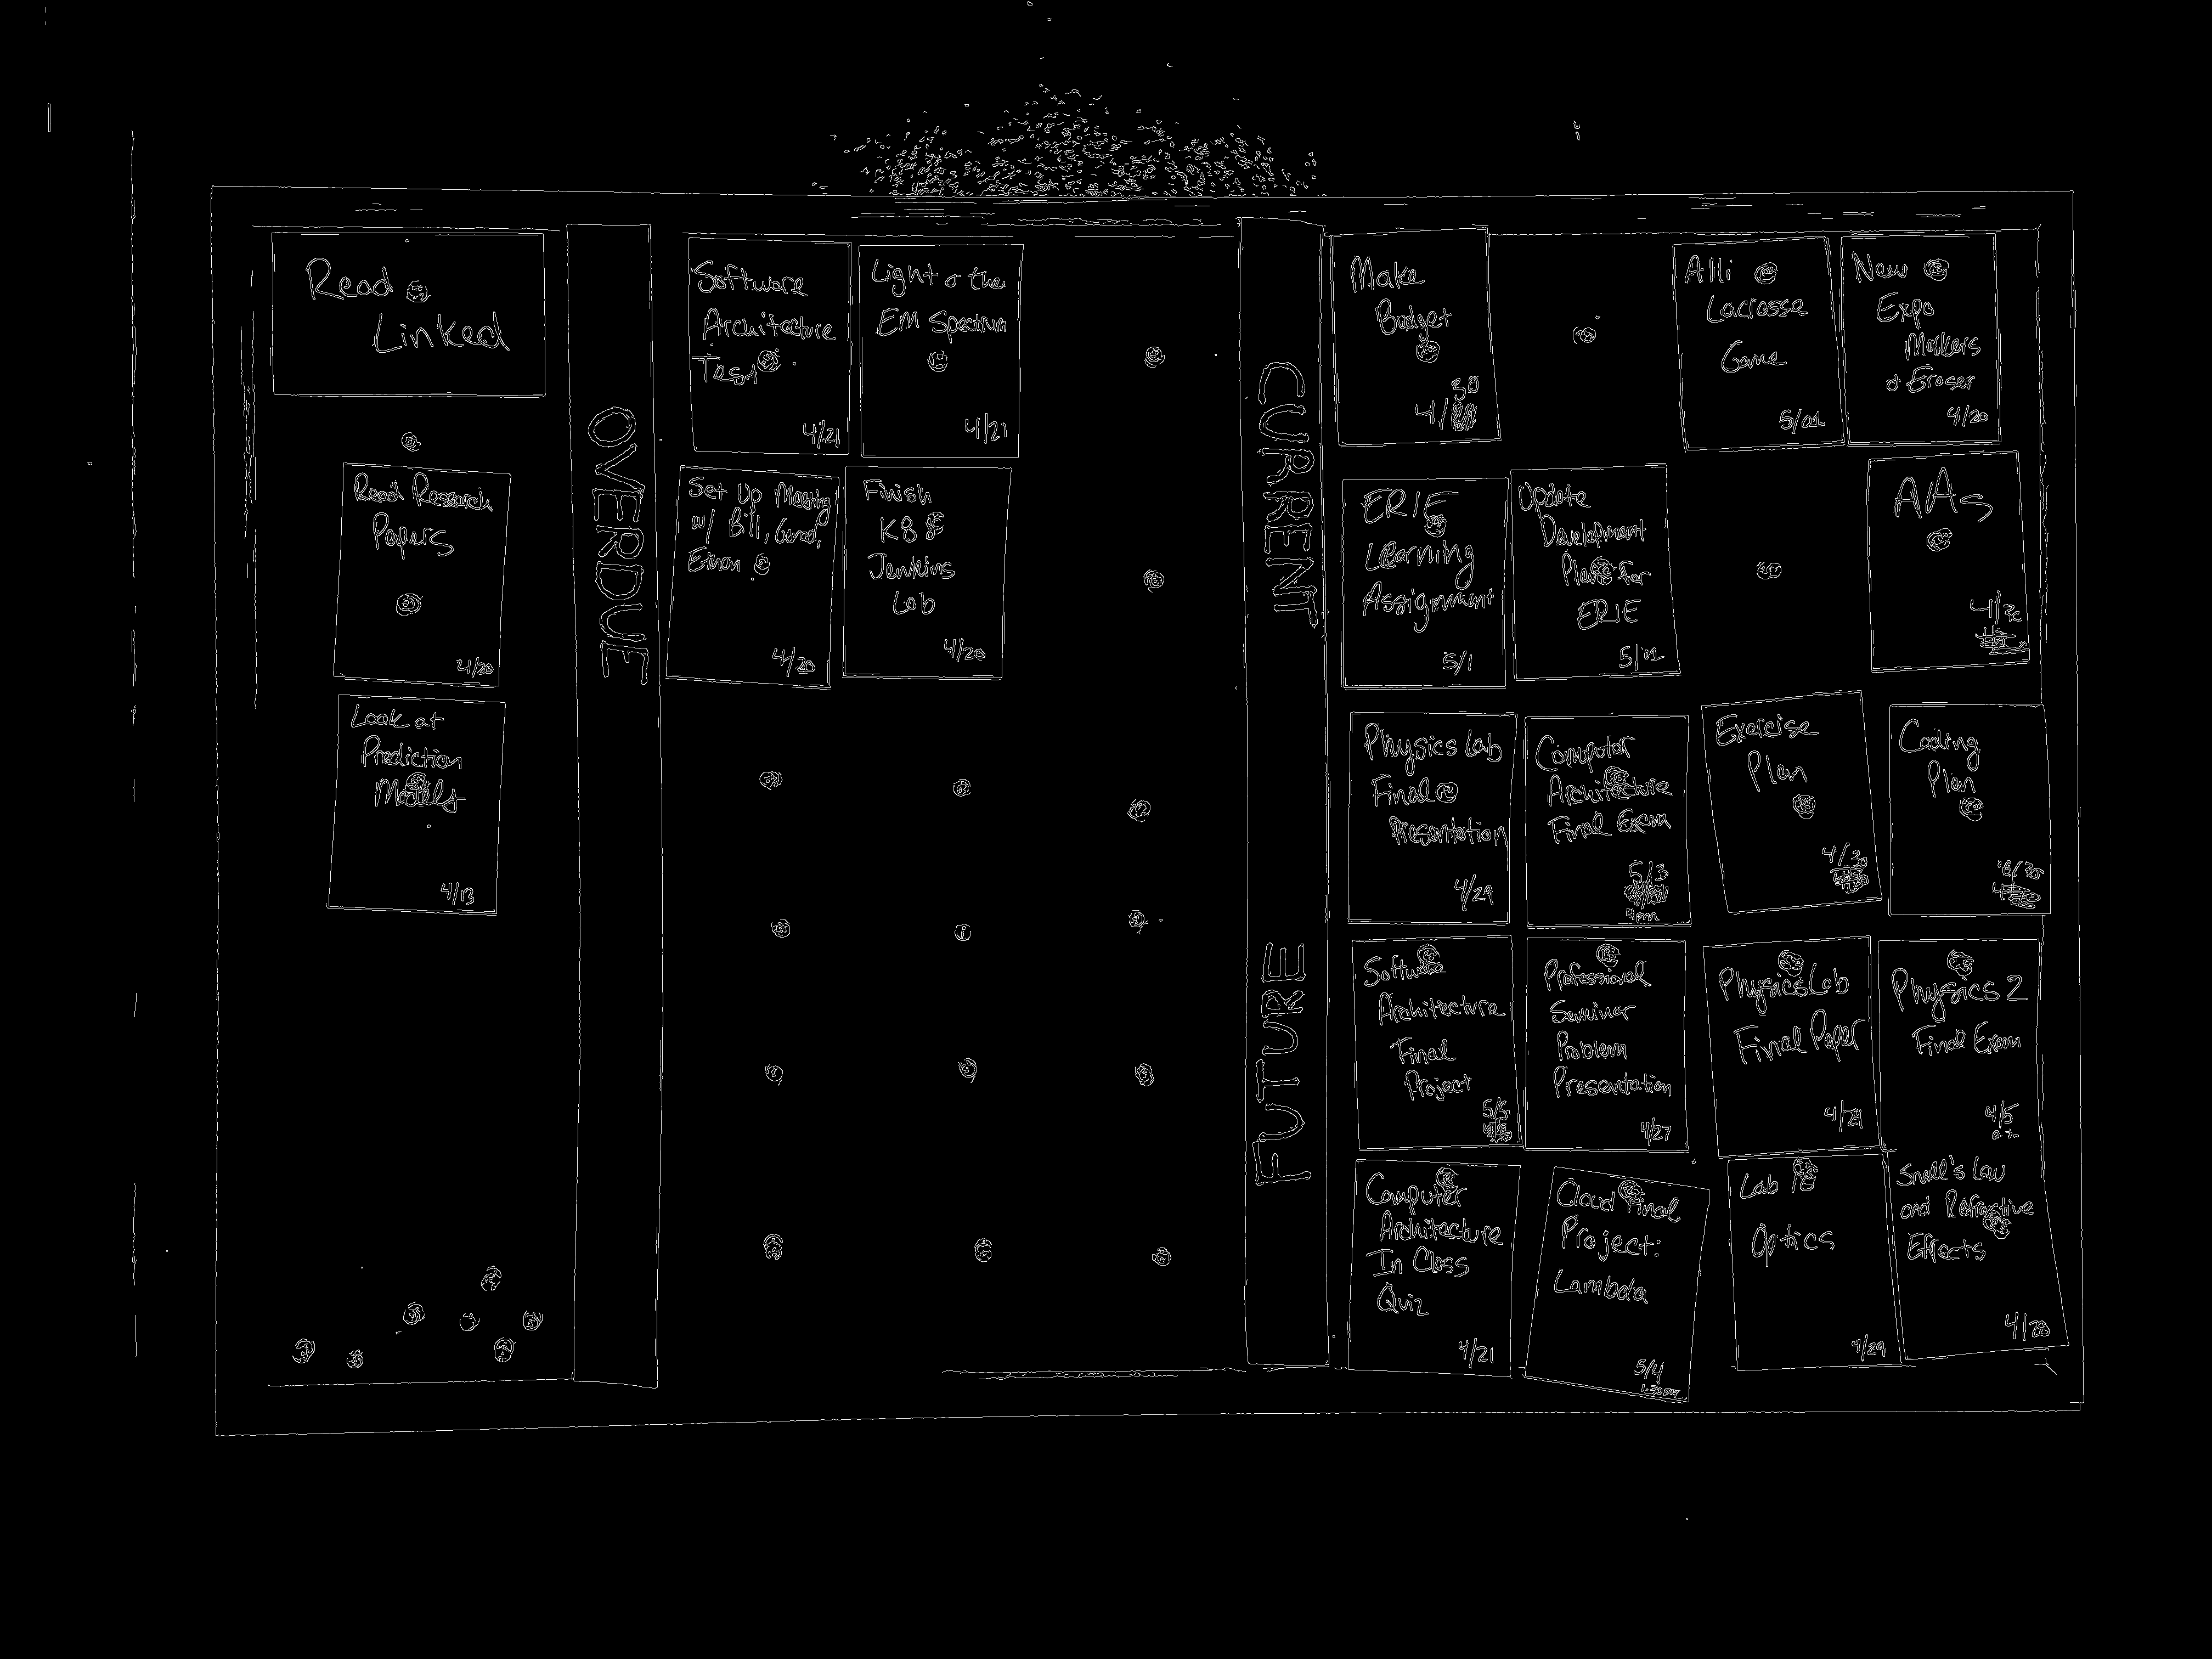 Read
Linked
Read Research
Papers
4/20
Look at
Prediction
Models
4/13
OVERDUE
Software
Architecture
Test
4/21
Light & the
EM Spectrum
4/21
Set Up Meeting
w/ Bill,
4/20
Finish
K8
Jenkins
Lab
4/20
CURRENT
FUTURE
Make
Budget
30
4/
Alli
Lacrosse
Game
5/01
New
Expo
Markers
& Eraser
4/20
ERIE
Learning
Assignment
5/1
Update
Development
Plans for
ERIE
5/01
AAs
Physics Lab
Final
Presentation
4/29
Computer
Architecture
Final Exam
5/3
4pm
Exercise
Plan
4/30
Coding
Plan
Software
Architecture
Final
Project
5/5
Professional
Seminar
Problem
Presentation
4/27
Physics Lab
Final Paper
4/29
Physics 2
Final Exam
4/5
Computer
Architecture
In Class
Quiz
4/21
Cloud Final
Project:
Lambda
5/4
1:30pm
Lab
Optics
4/29
Snell's Law
and Refractive
Effects
4/28